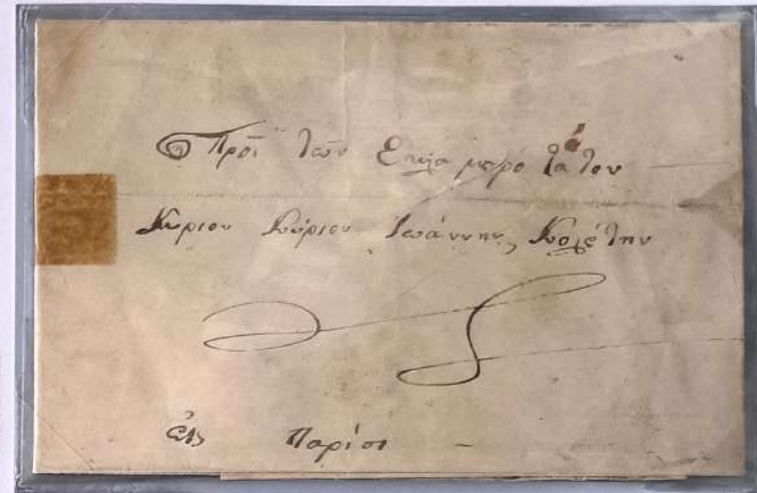 Προς τον Εκλαμπρότατον
Κύριον Κύριον Ιωάννην Κολέτην
εις Παρίσι